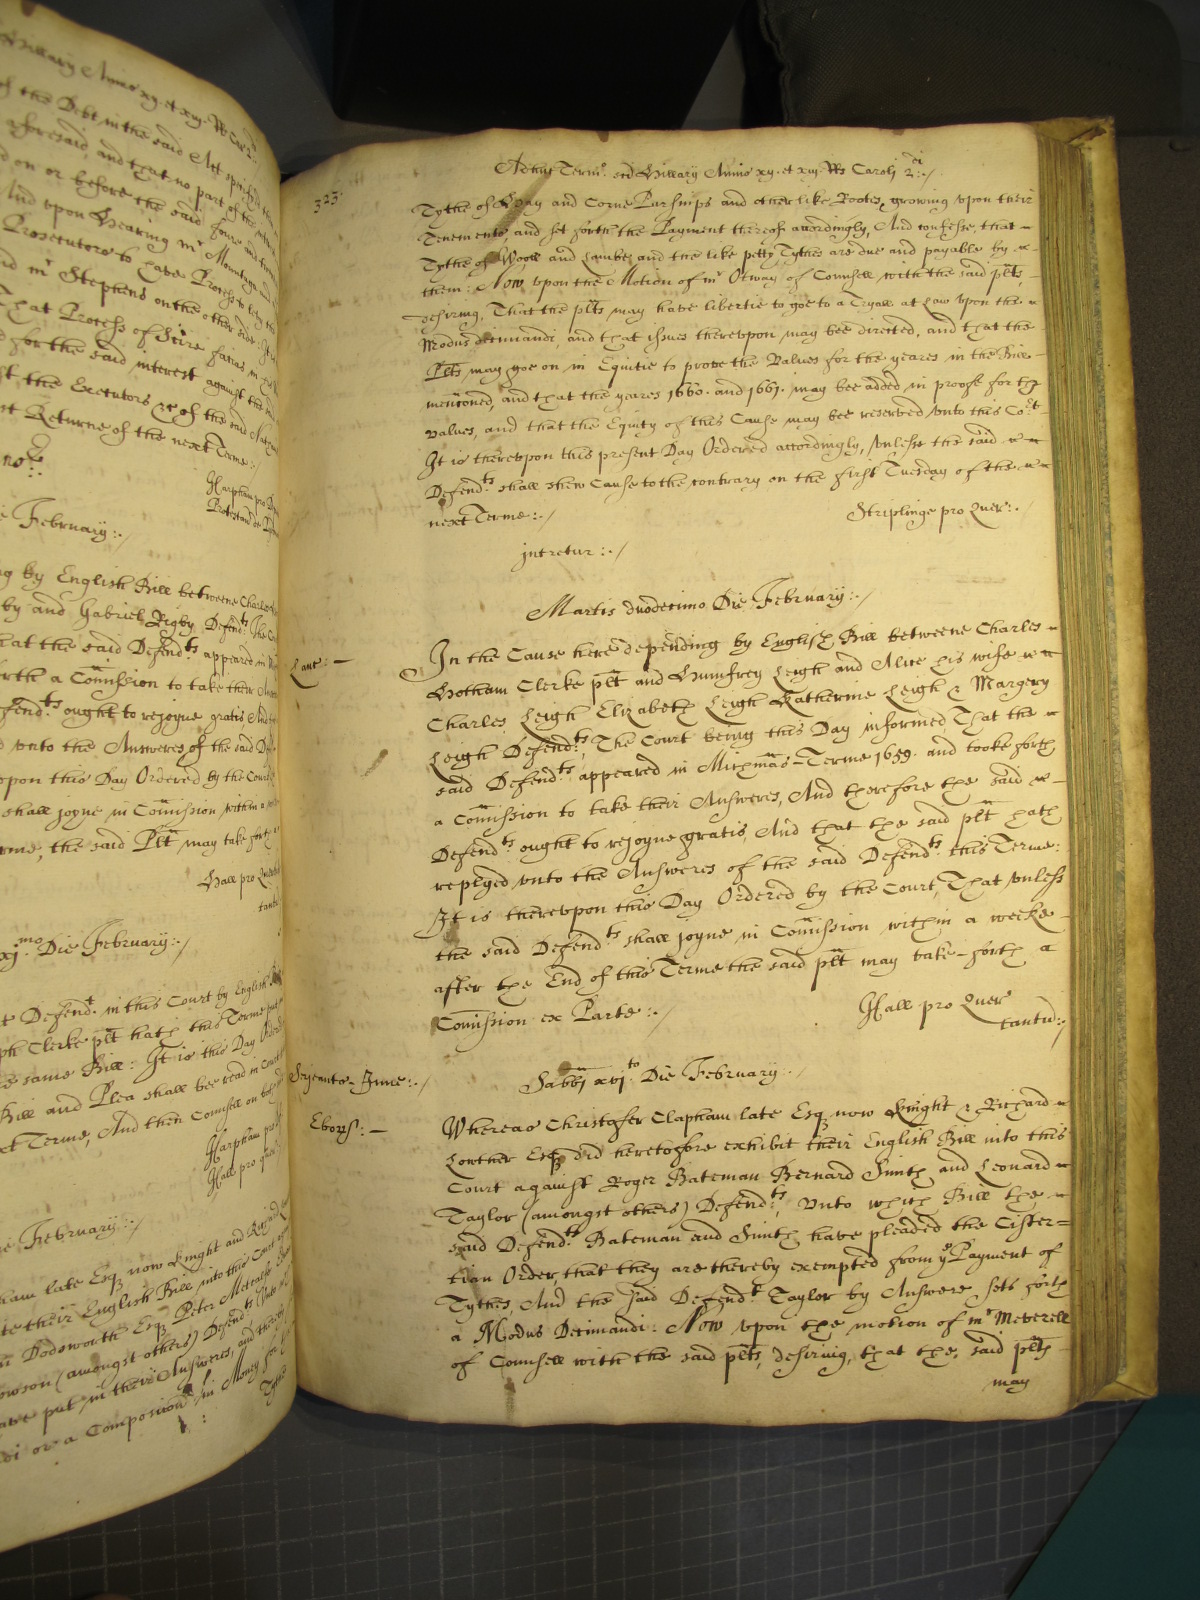 Hillary Anno xiij. et xiiij. Rs Car 2
of the Debt in the said Att specified
aforesaid, and that no part of the
on or before the said foure and twen
And upon Hearing mr Mountagu
Prosecutors to have Process to levy the
mr Stephens on the other side: It is
That Process of Scire facias in
for the said interest against the
the Executors &c of the said
Returne of the next Terme:/
Harpham pro
February:./
by English Bill betweene Charles
by and Gabriel Rigby Defend:ts The Co
that the said Defend:ts appeared in Mi
forth a Comission to take their Answ
Defend:ts ought to rejoyne gratis And
unto the Answeres of the said Def
upon this Day Ordered by the Court
shall joyne in Comission within a
Terme, the said Plt may take forth
Hall pro Quer
tantu
xj.mo Die February:./
Defend:t in this Court by English
Clerke plt hath this Terme
same Bill: It is this Day Ordered
Bill and Plea shall bee read in Court
Terme, And then Counsell on both
Harpham pro
Hall pro
February:./
late Esq now Knight and Richard
their English Bill into this Court
Dodsworth Esq Peter Metcalfe
(amongst others) Defend:ts
have put in their Answeres, and thereby
or a Composicon in Money for
Tythes
323.
Adhuc Termo. Sci Hillary Anno xiij. et xiiij. Rs Caroli 2:di./
Tythe of Hay and Corne Parsnips and other like Rootes growing upon their
Tenements, and set forth the Payment thereof accordingly, And confesse, that
Tythe of Wooll and Lambe, and the like petty Tythes are due and payable by
them: Now upon the Motion of mr Otway of Counsell with the said plts,
desiring, That the plts may have libertie to goe to a Tryall at Law upon the
Modus decimandi, and that issues thereupon may bee directed, and that the
Plts may goe on in Equitie to prove the Values for the yeares in the Bill
mencioned, and that the yeares 1660. and 1661. may bee added in proofe for the
values, and that the Equity of this Cause may bee reserved unto this Cort
It is thereupon this present Day Ordered accordingly, unlesse the said
Defend:ts shall shew Cause to the contrary on the first Tuesday of the
next Terme:./
Striplinge pro Quer:./
intretur:./
Martis duodecimo Die February:./
Lanc:
In the Cause here depending by English Bill betweene Charles
Hotham Clerke plt and Humfrey Leigh and Alice his wife
Charles Leigh Elizabeth Leigh Katherine Leigh & Margery
Leigh Defend:ts, The Court being this Day informed That the
said Defend:ts appeared in Michmas-Terme 1659. and tooke forth
a Comission to take their Answeres, And therefore the said
Defend:ts ought to rejoyne gratis, And that the said plt hath
replyed unto the Answeres of the said Defend:ts this Terme:
It is thereupon this Day Ordered by the Court, That unless
the said Defend:ts shall joyne in Comission within a weeke
after the End of this Terme the said plt may take forth a
Comission ex Parte:./
Hall pro Quer
tantu:./
Srjeants-Inne:./
Sabbi xvj:to Die February:./
Eborr:
Whereas Christofer Clapham late Esq now Knight & Richard
Lowther Esq did heretofore exhibit their English Bill into this
Court against Roger Bateman Bernard Smith and Leonard
Taylor (amongst others) Defend:ts, Unto which Bill the
said Defend:ts Bateman and Smith have pleaded the Cister=
tian Order, that they are thereby exempted from ye Payment of
Tythes, And the said Defend:t Taylor by Answere sets forth
a Modus Decimandi: Now upon the motion of mr Meverell
of Counsell with the said plts, desiring, that the, said plts
may